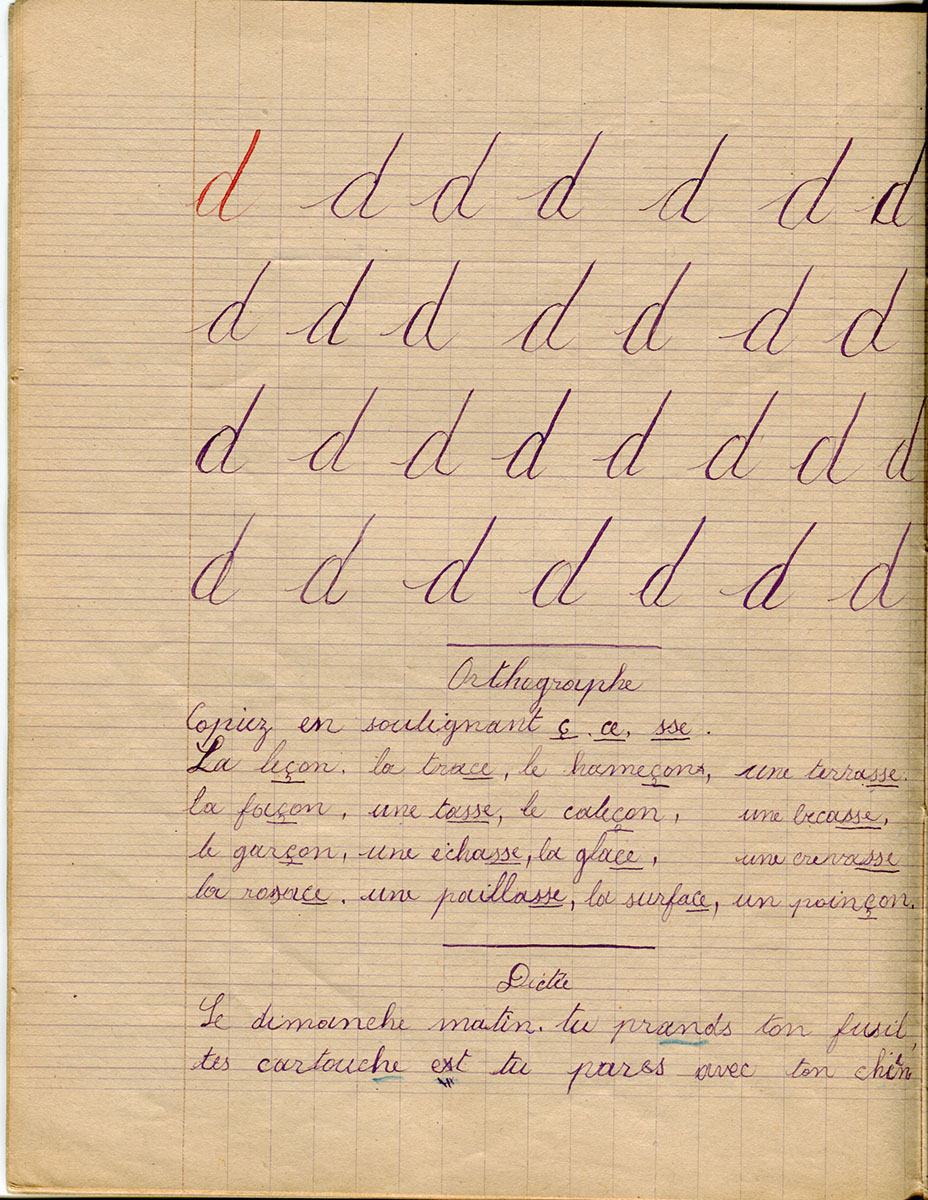 d d d d d d d
d d d d d d d
d d d d d d d d
d d d d d d d
Orthographe
Copiez en soulignant ç. ce, sse.
La leçon. la trace, le hameçon, une terrasse.
la façon, une tasse, le caleçon, une bécasse,
le garçon, une échasse, la glace, une crevasse
la rosace. une paillasse, la surface, un poinçon.
Dictée
Le dimanche matin. tu prands ton fusil,
tes cartouche est tu pares avec ton chien